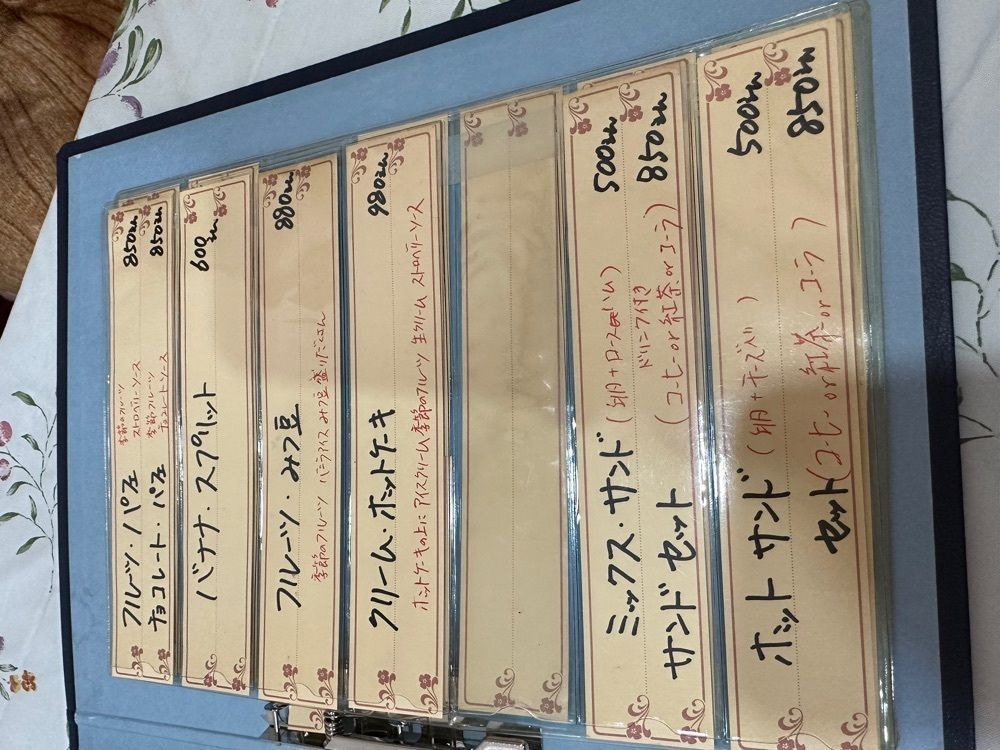 フルーツ・パフェ 季節のフルーツ ストロベリーソース 850円
チョコレート・パフェ 季節フルーツ チョコレートソース 850円
バナナ・スプリット 600円
フルーツ・みつ豆 880円
季節のフルーツ バニラアイス みつ豆 盛りだくさん
クリーム・ホットケーキ 980円
ホットケーキの上にアイスクリーム 季節のフルーツ 生クリーム ストロベリーソース
ミックス・サンド (卵+ロースハム) 500円
ドリンク付き
サンドセット (コーヒーor紅茶orコーラ) 850円
ホットサンド (卵+チーズ入り) 500円
セット(コーヒーor紅茶orコーラ) 850円